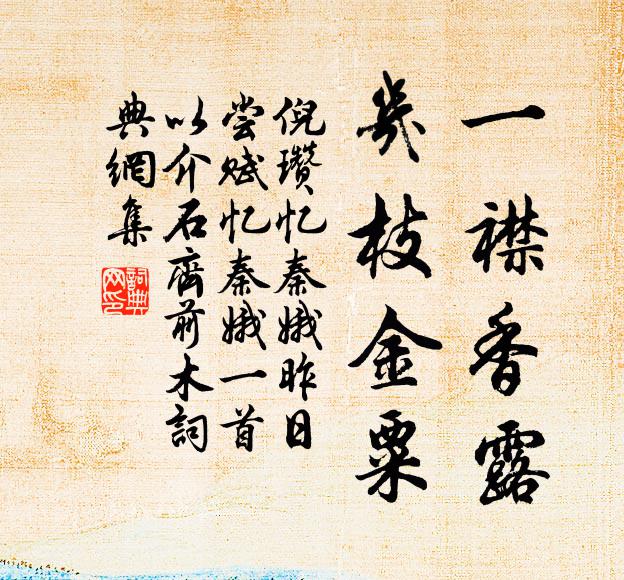 一襟香露
幾枝金粟
倪瓒忆秦娥昨日
尝赋忆秦娥一首
以介石齊前木詞
典網集
詞典
网印